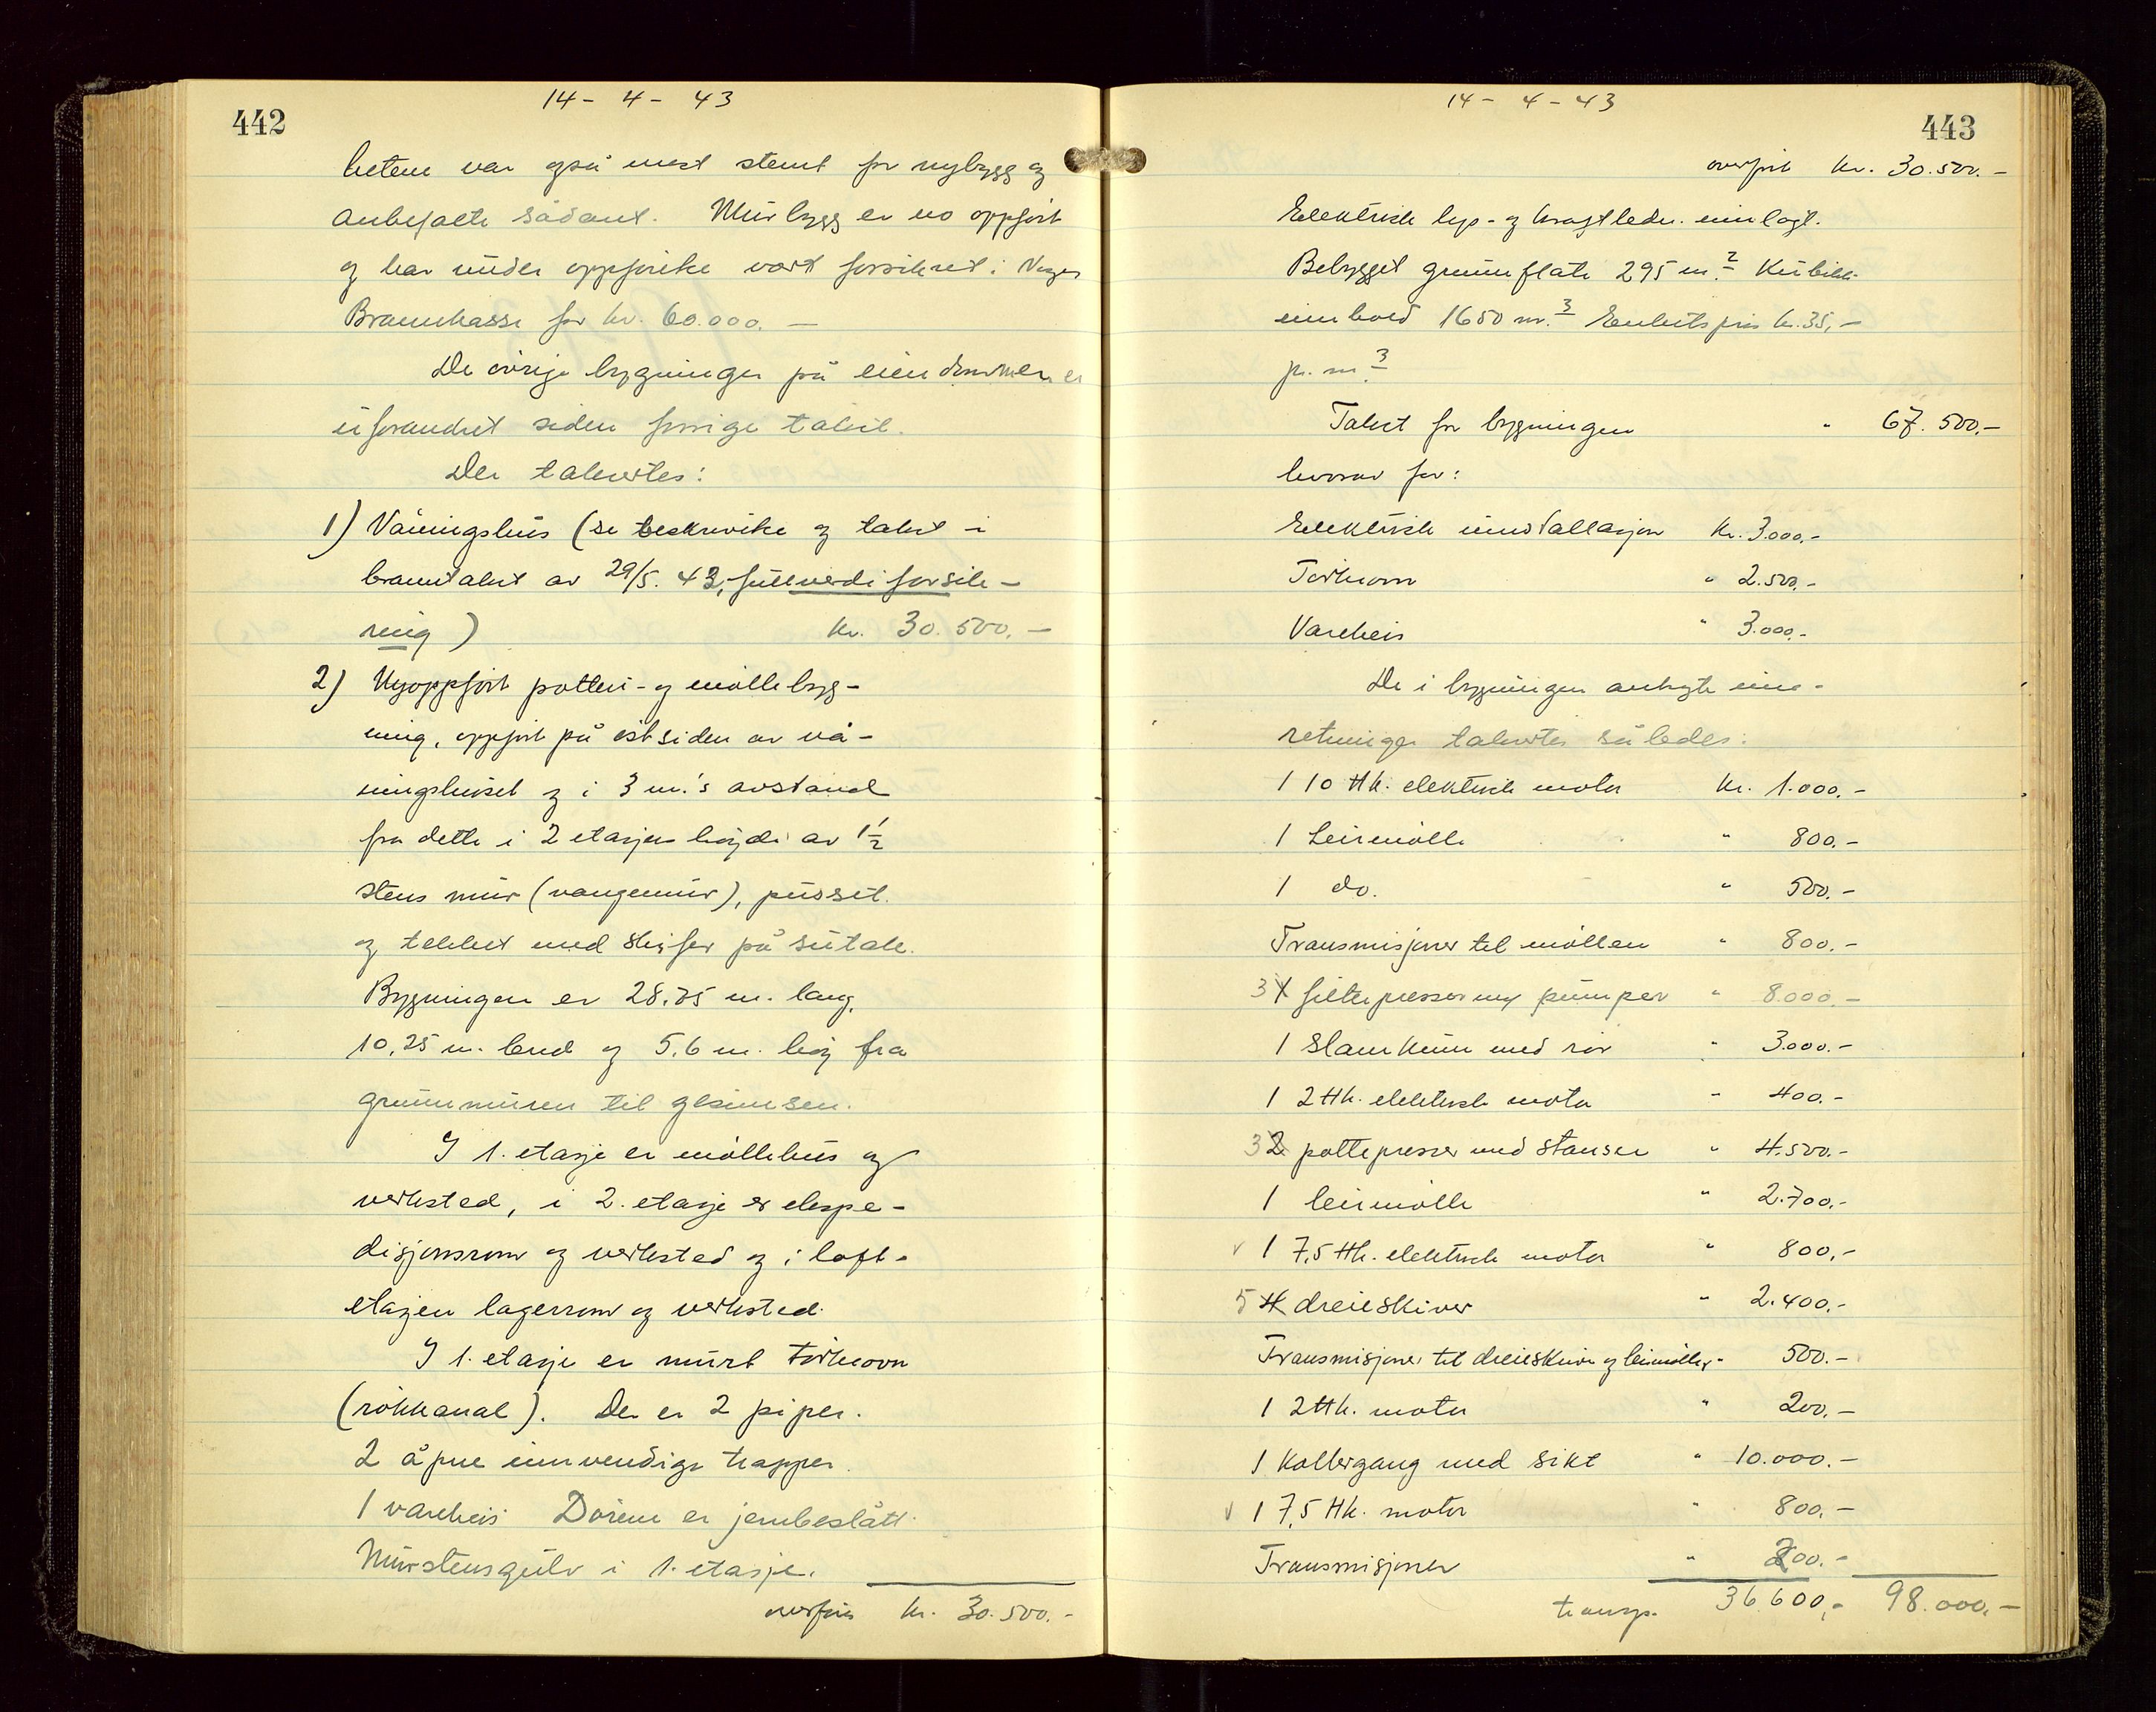 442
14 - 4 - 43
hetene var også mest stemt for nybygg og
anbefalte sådant. Murbygg er no oppført
og har under oppførike vært forsikret i Norges
Brannkasse for kr. 60.000.-
De øvrige bygninger på eiendommen er
uforandret siden forrige takst.
Der takseres:
1) Våningshus (se beskrivelse og takst i
branntakst av 29/5. 42, fullverdiforsik-
ring) kr. 30.500.-
2) Nyoppført potteri- og møllebyg-
ning, oppført på østsiden av vå-
ningshuset og i 3 m.'s avstand
fra dette i 2 etasjers høyde av 1 1/2
stens mur (vangemur), pusset
og tekket med skifer på sutak.
Bygningen er 28.75 m. lang,
10,25 m. bred og 5,6 m. høy fra
grunnmuren til gesimsen.
I 1. etasje er møllehus og
verksted, i 2. etasje er ekspe-
disjonsrom og verksted og i loft-
etasjen lagerrom og verksted.
I 1. etasje er murt tørkeovn
(røkkanal). Der er 2 piper.
2 åpne innvendige trapper.
1 vareheis Dørene er jernbeslått.
Murstensgulv i 1. etasje.
overføres kr. 30.500.-
14 - 4 - 43
443
overført kr. 30.500.-
Elektrisk lys- og kraftledn. innlagt.
Bebygget grunnflate 295 m.2 Kubikk-
innhold 1650 m.3 Enhetspris kr. 35,-
pr. m.3
Takst for bygningen " 67.500.-
hvorav for:
Elektrisk installasjon Kr. 3.000.-
Tørkeovn " 2.500.-
Vareheis " 3.000.-
De i bygningen anbragte inn-
retninger takseres således:
1 10 Hk. elektrisk motor Kr. 1.000.-
1 Leirmølle " 800.-
1 do. " 500.-
Transmisjoner til møllen " 800.-
3 1 filterpresser m/ pumper " 8.000.-
1 Slamkum med rør " 3.000.-
1 2 Hk. elektrisk motor " 400.-
3 2 pottepresser med stanser " 4.500.-
1 leirmølle " 2.700.-
v 1 7,5 Hk. elektrisk motor " 800.-
5 4 dreieskiver " 2.400.-
Transmisjoner til dreieskiver og leirmøller " 500.-
1 2 Hk. motor " 200.-
1 Kollergang med sikt " 10.000.-
v 1 7,5 Hk. motor " 800.-
Transmisjoner " 200.-
transp. 36.600,- 98.000,-